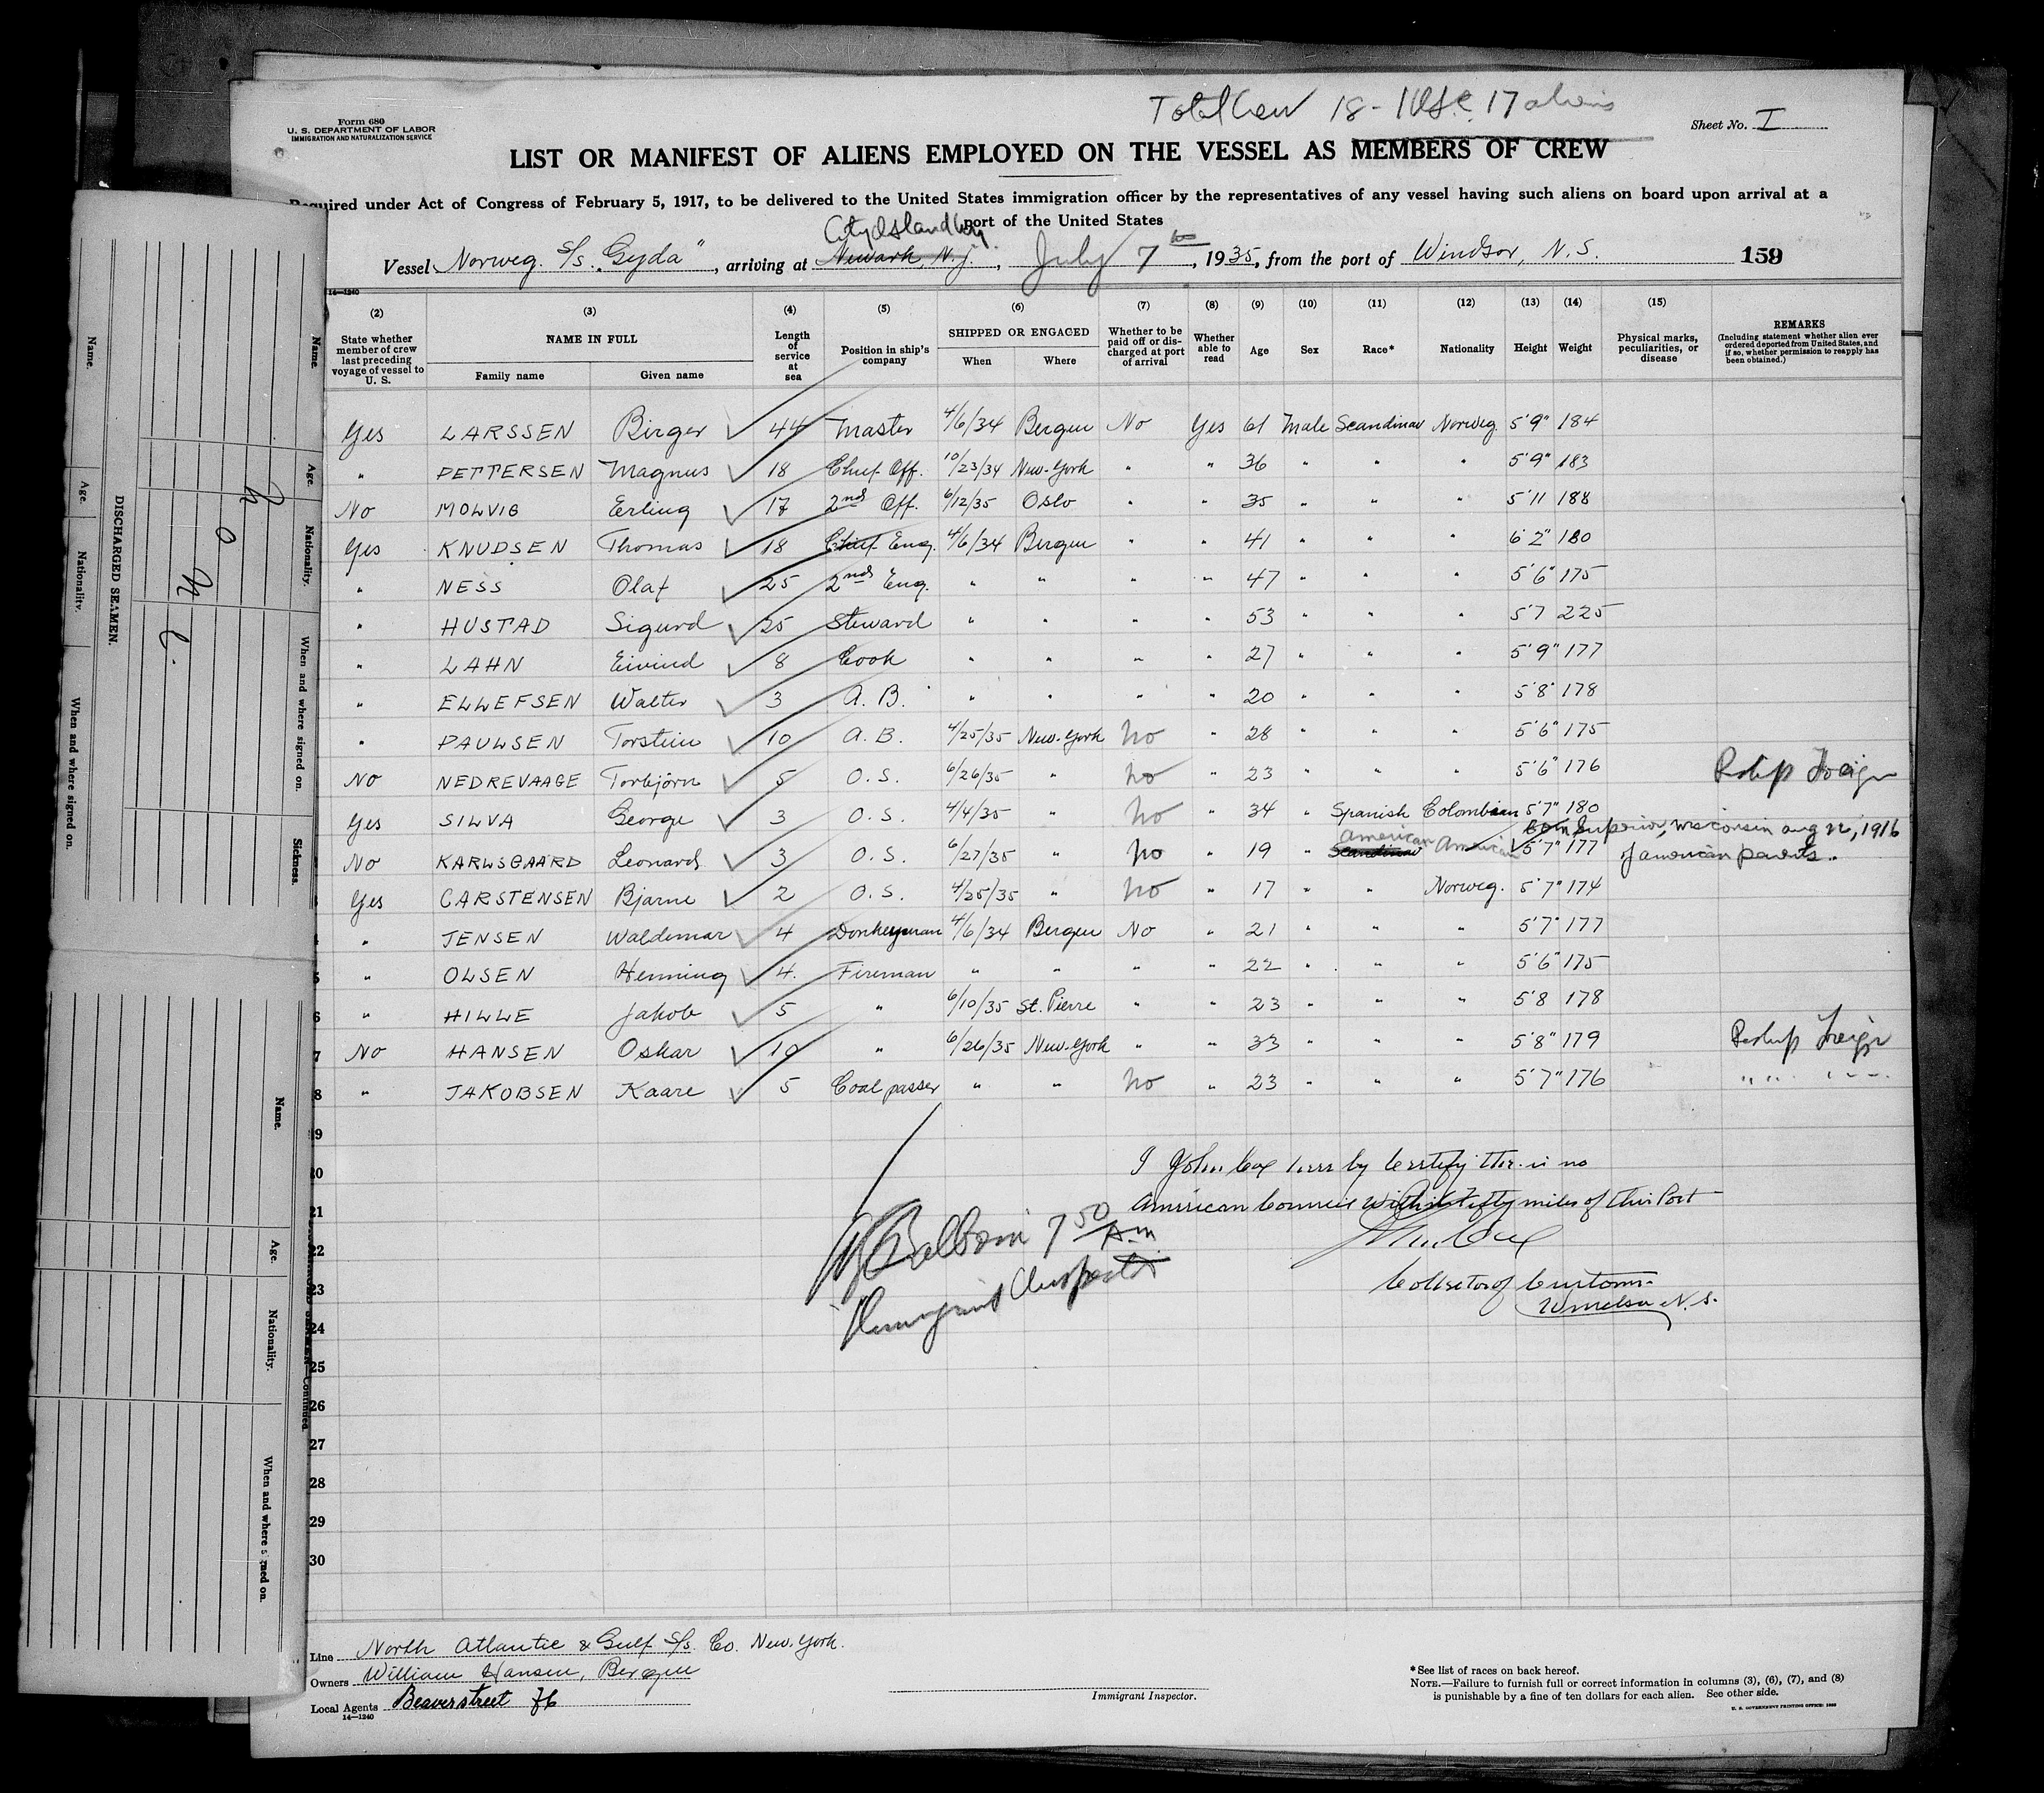 Total Crew 18 - 1 U.S.C. 17 aliens
Form 680
U. S. DEPARTMENT OF LABOR
IMMIGRATION AND NATURALIZATION SERVICE
Sheet No. I
LIST OR MANIFEST OF ALIENS EMPLOYED ON THE VESSEL AS MEMBERS OF CREW
Required under Act of Congress of February 5, 1917, to be delivered to the United States immigration officer by the representatives of any vessel having such aliens on board upon arrival at a
port of the United States
City Island
Vessel Norweg. S/s. "Gyda", arriving at Newark, N.J., July 7th, 1935, from the port of Windsor, N. S. 159
14—1240
(2) (3) (4) (5) (6) (7) (8) (9) (10) (11) (12) (13) (14) (15)
State whether member of crew last preceding voyage of vessel to U. S.
NAME IN FULL
Family name Given name
Length of service at sea
Position in ship's company
SHIPPED OR ENGAGED
When Where
Whether to be paid off or discharged at port of arrival
Whether able to read
Age Sex Race* Nationality Height Weight
Physical marks, peculiarities, or disease
REMARKS
(Including statement whether alien ever ordered deported from United States, and if so, whether permission to reapply has been obtained.)
Yes LARSSEN Birger ✓ 44 Master 4/6/34 Bergen No Yes 61 Male Scandinav Norweg. 5'9" 184
" PETTERSEN Magnus ✓ 18 Chief Off. 10/23/34 New-York " " 36 " " " 5'9" 183
No MOLVIG Erling ✓ 17 2nd Off. 6/12/35 Oslo " " 35 " " " 5'11 188
Yes KNUDSEN Thomas ✓ 18 Chief Eng. 4/6/34 Bergen " " 41 " " " 6'2" 180
" NESS Olaf ✓ 25 2nd Eng. " " " " 47 " " " 5'6" 175
" HUSTAD Sigurd ✓ 25 Steward " " " " 53 " " " 5'7 225
" LAHN Eivind ✓ 8 Cook " " " " 27 " " " 5'9" 177
" ELLEFSEN Walter ✓ 3 A. B. " " " " 20 " " " 5'8" 178
" PAULSEN Torstein ✓ 10 A. B. 4/25/35 New-York No " 28 " " " 5'6" 175
No NEDREVAAGE Torbjörn ✓ 5 O. S. 6/26/35 " No " 23 " " " 5'6" 176 Reship Foreign
Yes SILVA George ✓ 3 O. S. 4/4/35 " No " 34 " Spanish Colombian 5'7" 180
born Superior, Wisconsin aug 22, 1916
American
No KARLSGAARD Leonard ✓ 3 O. S. 6/27/35 " No " 19 " Scandinav American ✓ 5'7" 177 of american parents.
Yes CARSTENSEN Bjarne ✓ 2 O. S. 4/25/35 " No " 17 " " Norweg. 5'7" 174
" JENSEN Waldemar ✓ 4 Donkeyman 4/6/34 Bergen No " 21 " " " 5'7" 177
" OLSEN Henning ✓ 4. Fireman " " " " 22 " " " 5'6" 175
6 " HILLE Jakob ✓ 5 " 6/10/35 St. Pierre " " 23 " " " 5'8 178
7 No HANSEN Oskar ✓ 10 " 6/26/35 New-York " " 33 " " " 5'8" 179 Reship Foreign
8 " JAKOBSEN Kaare ✓ 5 Coal passer " " No " 23 " " " 5'7" 176 " " " "
19
20
21
22
23
24
25
26
27
28
29
30
I John Cox here by Certify ther is no
American Council within Fifty miles of this Port
John Cox
Collector of Customs
Windsor N. S.
Baldwin 7 50 A.m
Immigrant Inspector
Line North Atlantic & Gulf S/s. Co. New-York.
Owners William Hansen, Bergen
Local Agents Beaverstreet 76
14—1240
Immigrant Inspector.
*See list of races on back hereof.
NOTE.—Failure to furnish full or correct information in columns (3), (6), (7), and (8)
is punishable by a fine of ten dollars for each alien. See other side.
U. S. GOVERNMENT PRINTING OFFICE
DISCHARGED SEAMEN.
Name. Age. Nationality. When and where signed on.
Name. Age. Nationality. When and where signed on. Sickness.
None.
Name. Age. Nationality. When and where signed on.
Continued